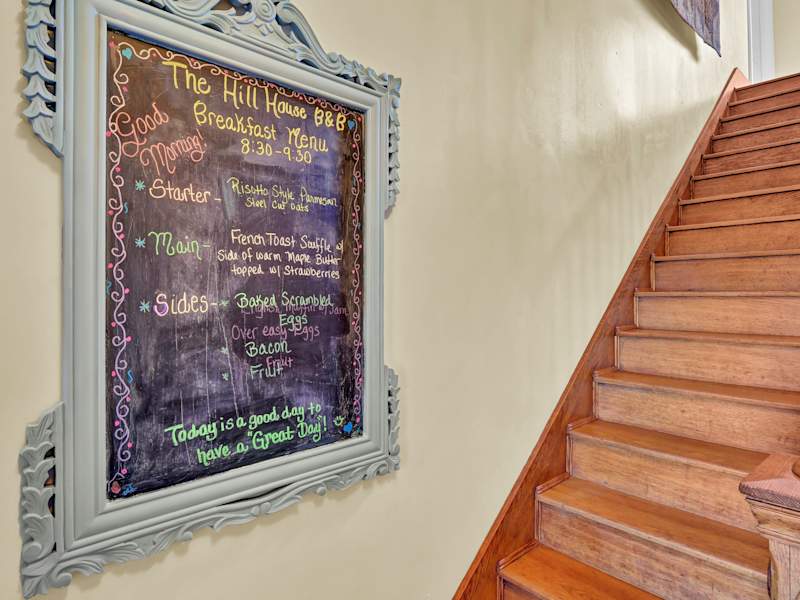 The Hill House B&B
Breakfast Menu
8:30-9:30
Good
Morning!
Starter - Risotto Style Parmesan
Steel Cut oats
Main - French Toast Souffle w/
side of warm Maple Butter
topped w/ Strawberries
Sides - Baked Scrambled
English Muffin w/ Jam
Eggs
Over easy Eggs
Bacon
Fruit
Fruit
Today is a good day to
have a "Great Day"!